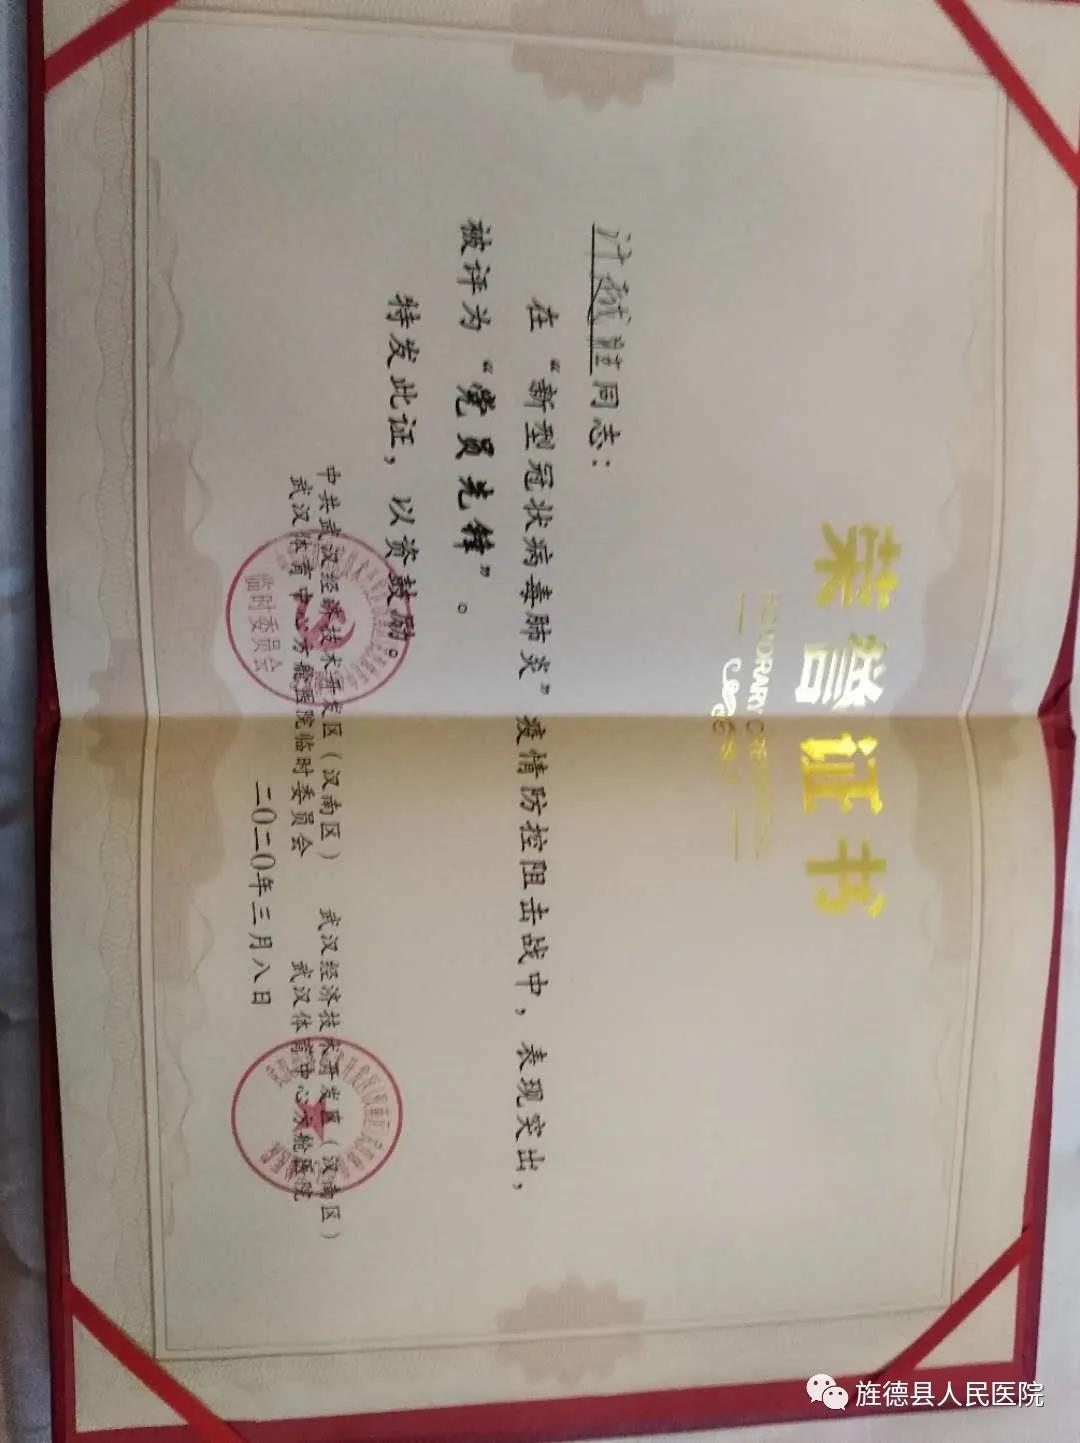 荣誉证书
HONORARY CREDENTIAL
同志：
在“新型冠状病毒肺炎”疫情防控阻击战中，表现突出，
被评为“党员先锋”。
特发此证，以资鼓励。
中共武汉经济技术开发区（汉南区）
武汉体育中心方舱医院临时委员会
武汉经济技术开发区（汉南区）
武汉体育中心方舱医院
二〇二〇年三月八日
临时委员会
旌德县人民医院